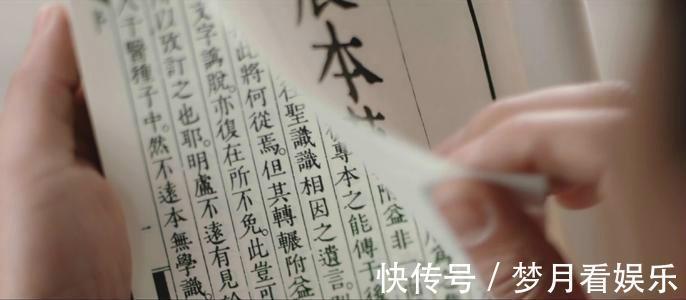 本
附益非
專本之能傳
聖識識相因之遺言
此將何從焉。但其轉輾附益
文字譌脫。亦復在所不免。此豈可
以攷訂之也耶。明盧不遠有見
于醫種子中。然不遠本無學識。
快传号 / 梦月看娱乐